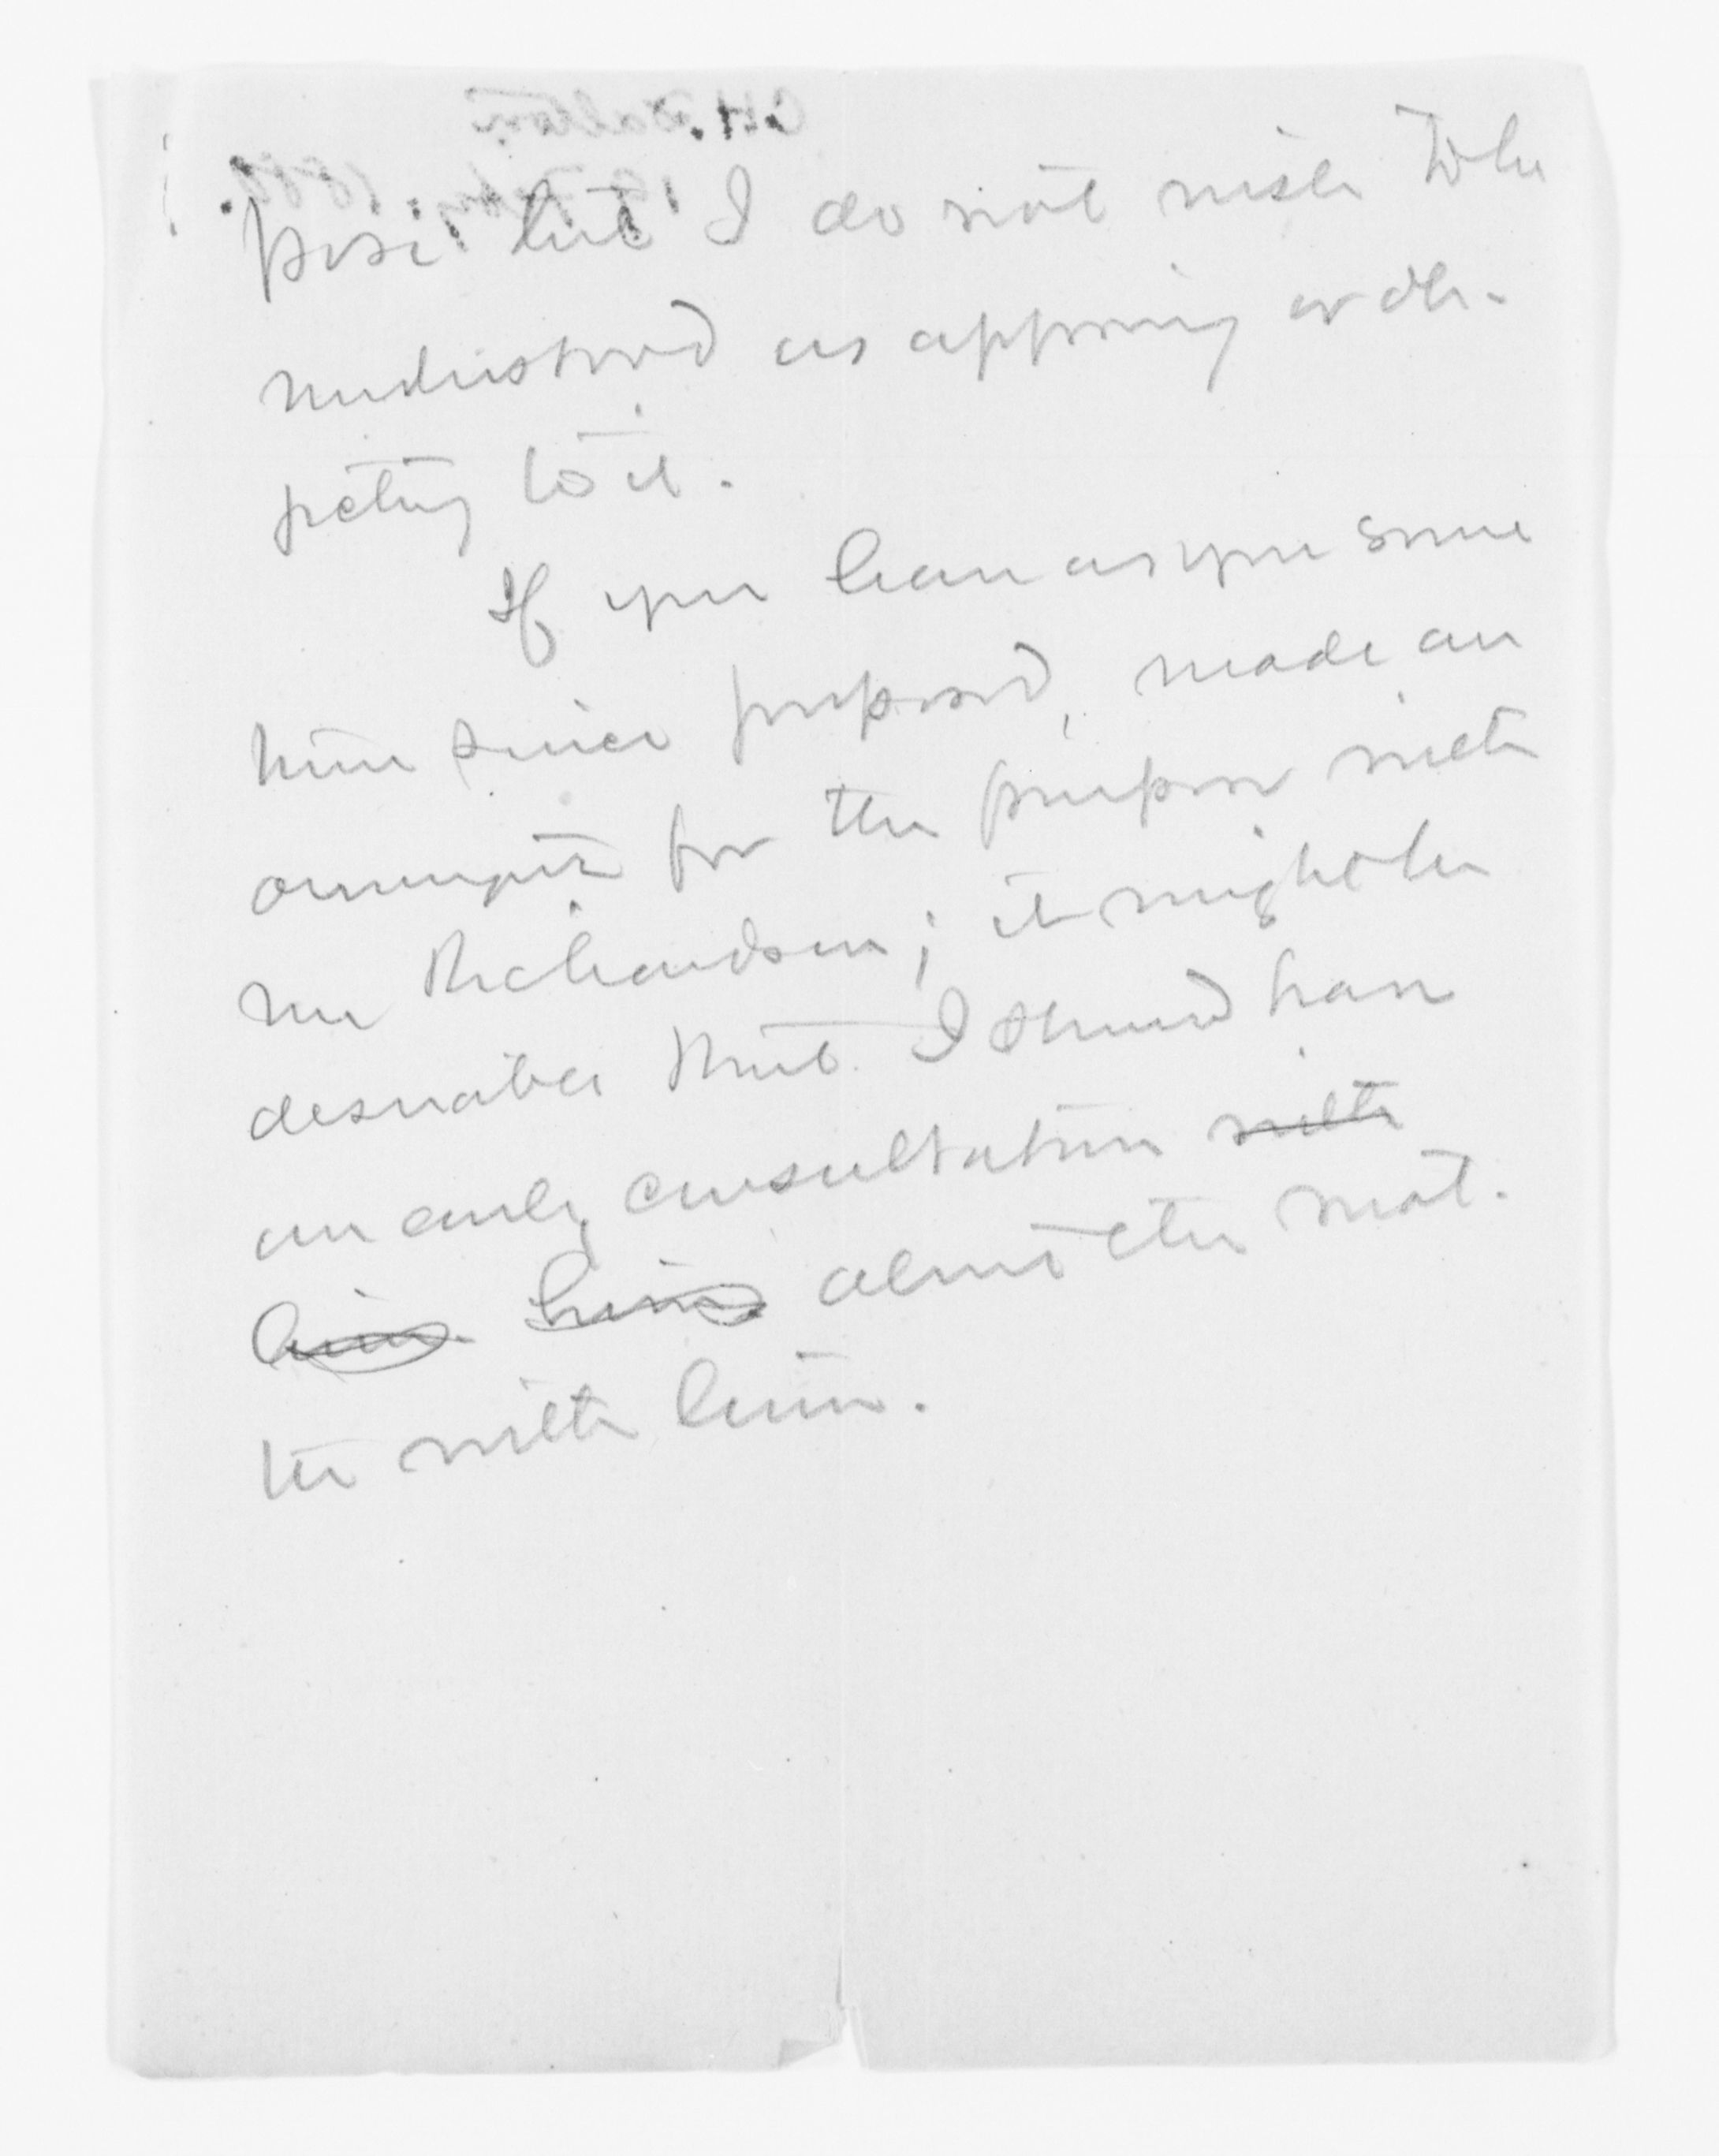 pose; but I do not wish to be
understood as opposing or ob-
jecting to it.
If you have as you some
time since proposed, made an
arrangmt for the purpose with
Mr Richardson; it might be
desirable that I should have
an early consultation with
him him about the mat-
ter with him.